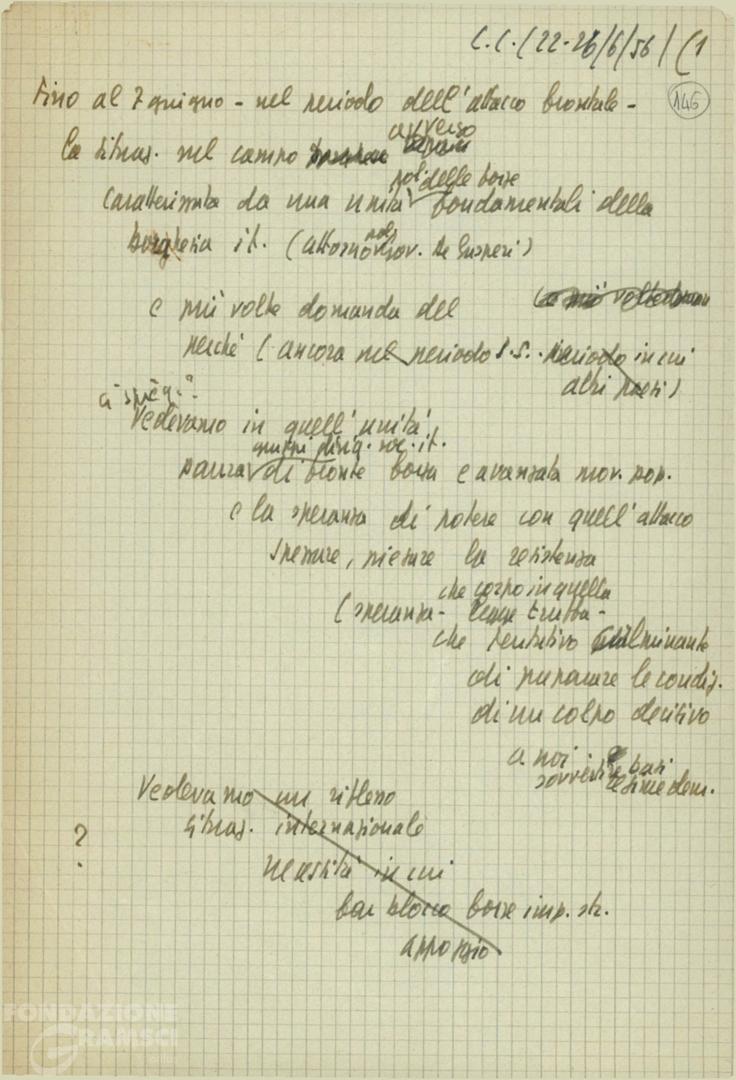 C.C. (22-26/6/56) (1
146
Fino al 7 giugno - nel periodo dell'attacco frontale -
avverso
la situaz. nel campo
pol. delle forze
caratterizzata da una unità fondamentali della
borghesia it. (attorno gov. De Gasperi)
e più volte domanda del
perché (ancora nel periodo s.s. periodo in cui
altri paesi)
ci spieg.?
Vedevamo in quell'unità
gruppi dirig. soc. it.
paura di fronte forza e avanzata mov. pop.
e la speranza di potere con quell'attacco
spezzare, piegare la resistenza
che corpo in quella
(speranza - legge truffa -
che tentativo culminante
di preparare le condiz.
di un colpo decisivo
a noi e
sovvertire basi
regime dem.
Vedevamo un riflesso
situaz. internazionale
?
necessità in cui
far blocco forze imp. str.
appoggio
FONDAZIONE
GRAMSCI